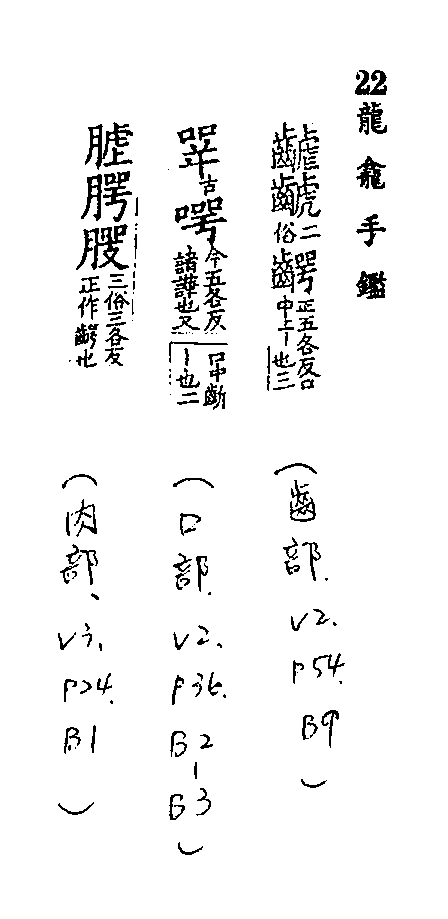 22龍龕手鑑
二俗正五各反口中上丨也三
㖾古今五各反諸譁也又口中齗丨也二
三俗三各反正作齶也
（齒部．v2．P54．B9）
（口部．v2．P36．B2-B3）
（肉部、v3．P24．B1）